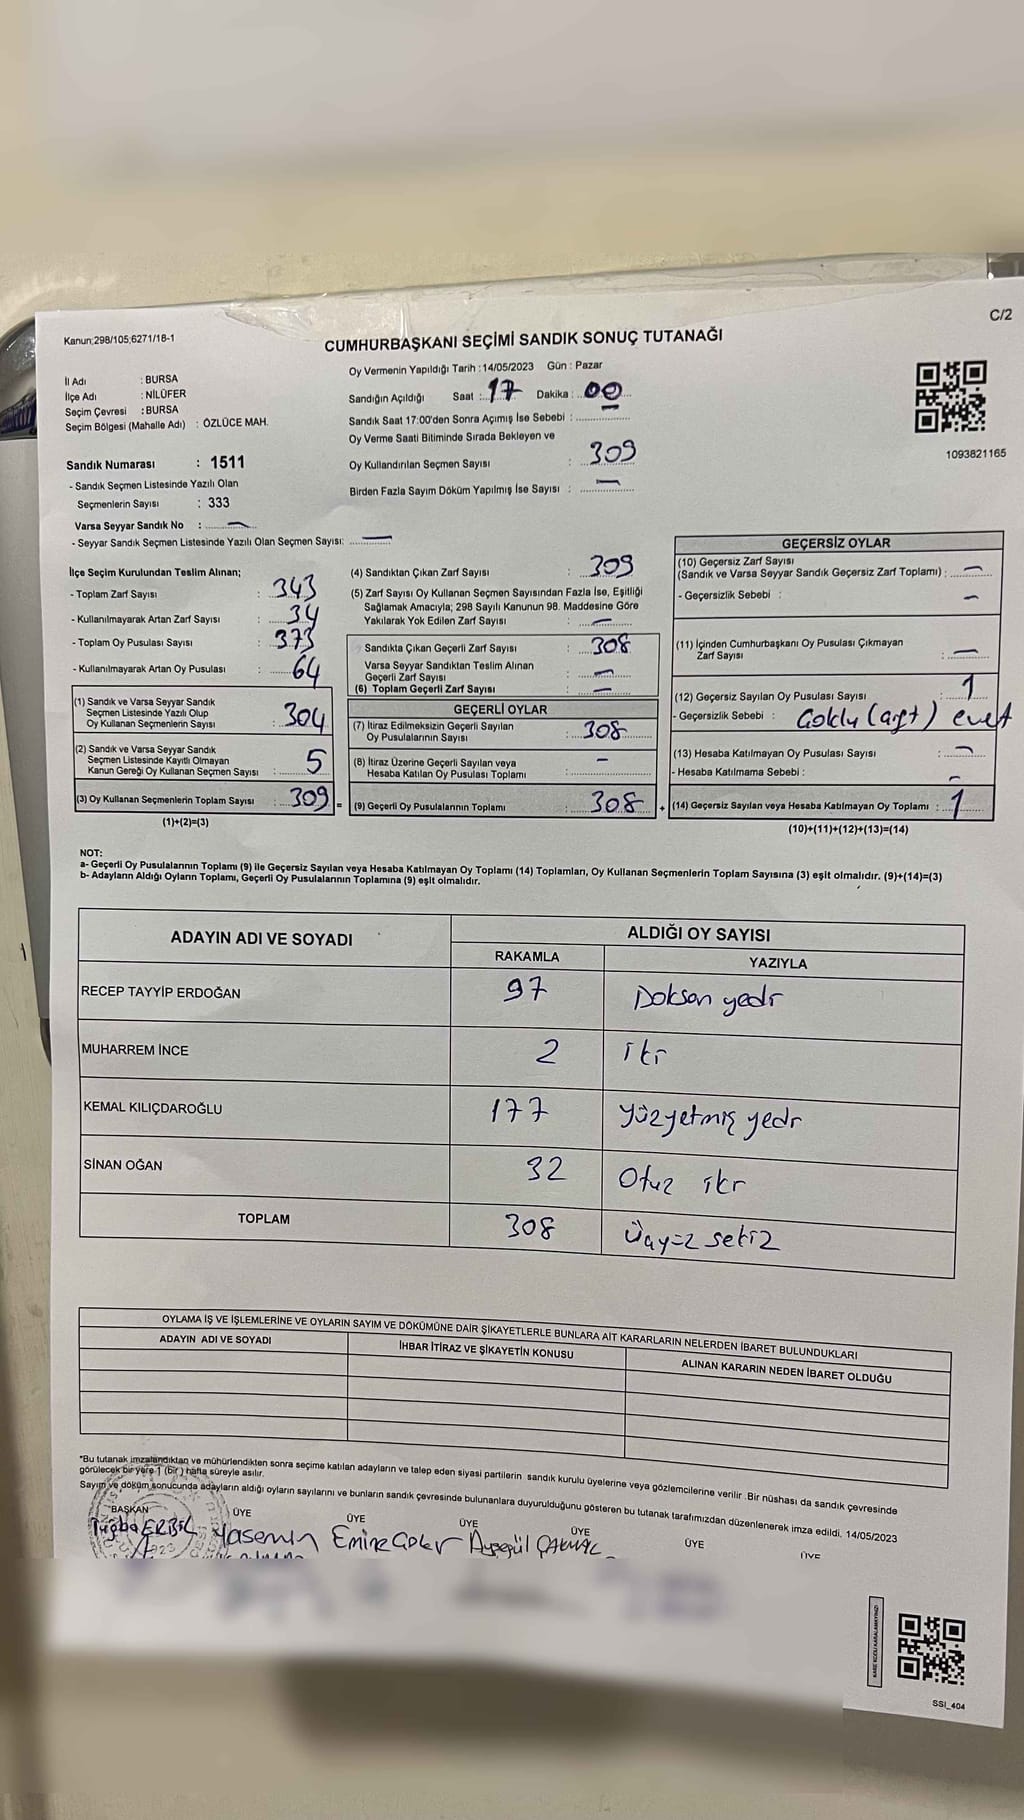 C/2
Kanun;298/105,6271/18-1
CUMHURBAŞKANI SEÇİMİ SANDIK SONUÇ TUTANAĞI
İl Adı : BURSA
İlçe Adı : NİLÜFER
Seçim Çevresi : BURSA
Seçim Bölgesi (Mahalle Adı) : ÖZLÜCE MAH.
Sandık Numarası : 1511
- Sandık Seçmen Listesinde Yazılı Olan
Seçmenlerin Sayısı : 333
Varsa Seyyar Sandık No : —
- Seyyar Sandık Seçmen Listesinde Yazılı Olan Seçmen Sayısı: —
Oy Vermenin Yapıldığı Tarih : 14/05/2023 Gün : Pazar
Sandığın Açıldığı Saat : 17 Dakika : 00
Sandık Saat 17:00'den Sonra Açımış İse Sebebi :
Oy Verme Saati Bitiminde Sırada Bekleyen ve
Oy Kullandırılan Seçmen Sayısı : 309
Birden Fazla Sayım Döküm Yapılmış İse Sayısı : —
1093821165
İlçe Seçim Kurulundan Teslim Alınan;
- Toplam Zarf Sayısı : 343
- Kullanılmayarak Artan Zarf Sayısı : 34
- Toplam Oy Pusulası Sayısı : 373
- Kullanılmayarak Artan Oy Pusulası : 64
(1) Sandık ve Varsa Seyyar Sandık
Seçmen Listesinde Yazılı Olup
Oy Kullanan Seçmenlerin Sayısı : 304
(2) Sandık ve Varsa Seyyar Sandık
Seçmen Listesinde Kayıtlı Olmayan
Kanun Gereği Oy Kullanan Seçmen Sayısı : 5
(3) Oy Kullanan Seçmenlerin Toplam Sayısı : 309 =
(1)+(2)=(3)
(4) Sandıktan Çıkan Zarf Sayısı : 309
(5) Zarf Sayısı Oy Kullanan Seçmen Sayısından Fazla İse, Eşitliği
Sağlamak Amacıyla; 298 Sayılı Kanunun 98. Maddesine Göre
Yakılarak Yok Edilen Zarf Sayısı : —
Sandıkta Çıkan Geçerli Zarf Sayısı : 308
Varsa Seyyar Sandıktan Teslim Alınan
Geçerli Zarf Sayısı : —
(6) Toplam Geçerli Zarf Sayısı : —
GEÇERLİ OYLAR
(7) İtiraz Edilmeksizin Geçerli Sayılan
Oy Pusulalarının Sayısı : 308
(8) İtiraz Üzerine Geçerli Sayılan veya
Hesaba Katılan Oy Pusulası Toplamı : —
(9) Geçerli Oy Pusulalarının Toplamı : 308 +
GEÇERSİZ OYLAR
(10) Geçersiz Zarf Sayısı
(Sandık ve Varsa Seyyar Sandık Geçersiz Zarf Toplamı) : —
- Geçersizlik Sebebi : —
(11) İçinden Cumhurbaşkanı Oy Pusulası Çıkmayan
Zarf Sayısı : —
(12) Geçersiz Sayılan Oy Pusulası Sayısı : 1
- Geçersizlik Sebebi : evet
(13) Hesaba Katılmayan Oy Pusulası Sayısı : —
- Hesaba Katılmama Sebebi : —
(14) Geçersiz Sayılan veya Hesaba Katılmayan Oy Toplamı : 1
(10)+(11)+(12)+(13)=(14)
NOT:
a- Geçerli Oy Pusulalarının Toplamı (9) ile Geçersiz Sayılan veya Hesaba Katılmayan Oy Toplamı (14) Toplamları, Oy Kullanan Seçmenlerin Toplam Sayısına (3) eşit olmalıdır. (9)+(14)=(3)
b- Adayların Aldığı Oyların Toplamı, Geçerli Oy Pusulalarının Toplamına (9) eşit olmalıdır.
ADAYIN ADI VE SOYADI
ALDIĞI OY SAYISI
RAKAMLA YAZIYLA
RECEP TAYYİP ERDOĞAN 97 Doksan yedi
MUHARREM İNCE 2 iki
KEMAL KILIÇDAROĞLU 177 yüzyetmiş yedi
SİNAN OĞAN 32 Otuz iki
TOPLAM 308 Üçyüz sekiz
OYLAMA İŞ VE İŞLEMLERİNE VE OYLARIN SAYIM VE DÖKÜMÜNE DAİR ŞİKAYETLERLE BUNLARA AİT KARARLARIN NELERDEN İBARET BULUNDUKLARI
ADAYIN ADI VE SOYADI İHBAR İTİRAZ VE ŞİKAYETİN KONUSU ALINAN KARARIN NEDEN İBARET OLDUĞU
*Bu tutanak imzalandıktan ve mühürlendikten sonra seçime katılan adayların ve talep eden siyasi partilerin sandık kurulu üyelerine veya gözlemcilerine verilir. Bir nüshası da sandık çevresinde
görülecek bir yere 1 (bir) hafta süreyle asılır.
Sayım ve döküm sonucunda adayların aldığı oyların sayılarını ve bunların sandık çevresinde bulunanlara duyurulduğunu gösteren bu tutanak tarafımızdan düzenlenerek imza edildi. 14/05/2023
BAŞKAN ÜYE ÜYE ÜYE ÜYE ÜYE ÜYE
Tuğba ERBİL Yasemin Emine Ayşegül ÇAKMAK
SSI_404